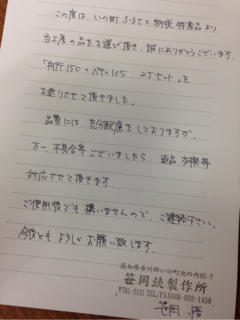 この度は、いの町ふるさと納税特産品より
当工房の品をお選び頂き、誠にありがとうございます。
「舟行150・ペティ105 2丁セット」を
お送りさせて頂きました。
品質には充分配慮をしておりますが、
万一不具合等ございましたら返品交換等
対応させて頂きます
ご使用後でも構いませんので、ご連絡下さい。
今後ともよろしくお願い致します。
高知県吾川郡いの町池の内85-7
笹岡鋏製作所
〒781-2121 TEL/FAX088-892-1450
笹岡 悟